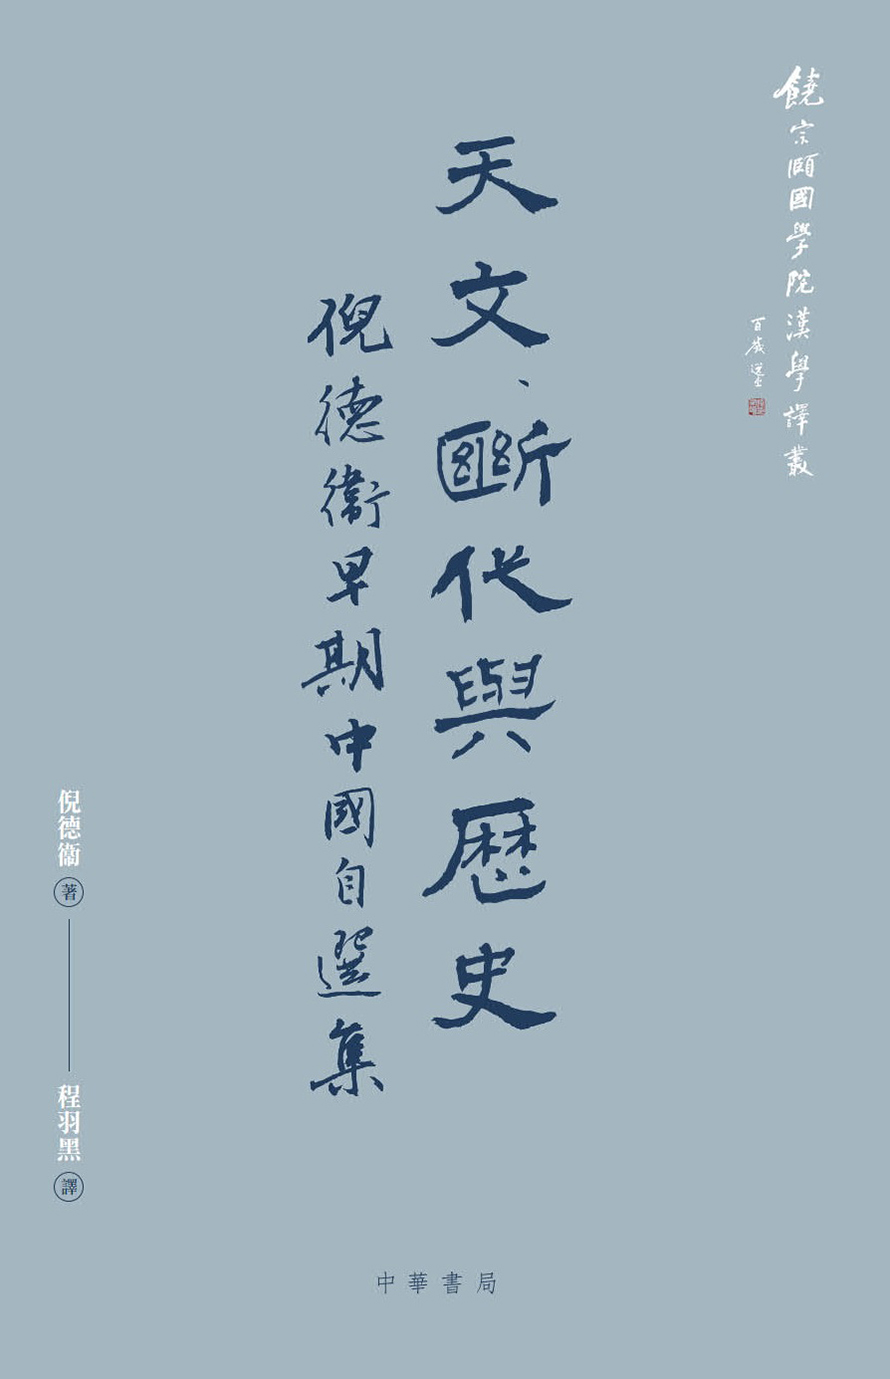 饒宗頤國學院漢學譯叢
百歲選堂
天文、斷代與歷史
倪德衞早期中國自選集
倪德衞 著
程羽黑 譯
中華書局